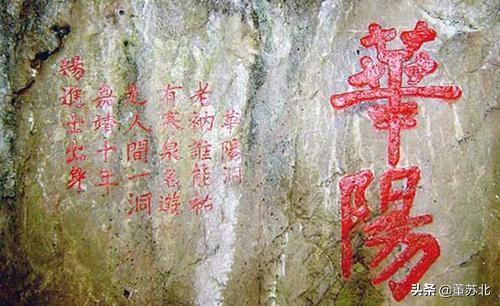 華陽
華陽洞
老衲誰能
有寒泉遊
是人間一洞
嘉靖十年
賜進士出身
头条 @董苏北